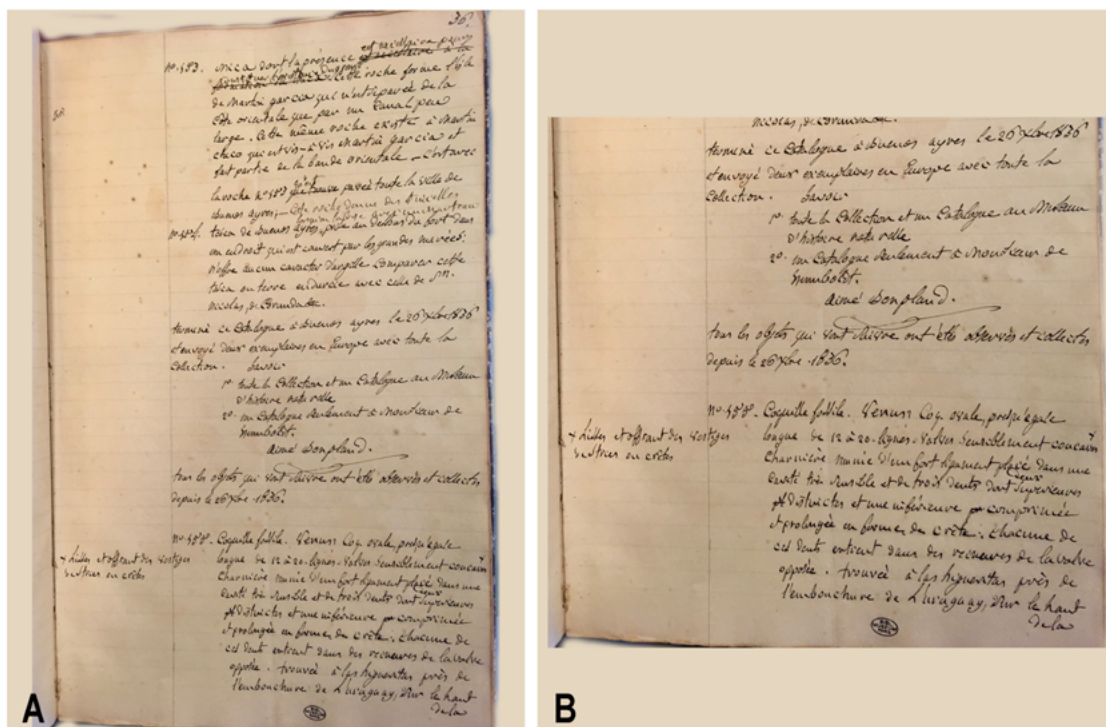 36.
nº 583. mica dont la présence est nécessaire pour
cette roche forme l'île
de Martin garcia qui n'est séparée de la
Côte orientale que par un Canal peu
large. Cette même roche existe à Martin
chico qui est vis-à-vis Martin garcia et
fait partie de la bande orientale – c'est avec
la roche nº 583 pavée toute la ville de
buenos ayres, – Cette roche donne des étincelles
tosca de buenos ayres, prise au dessous du fort dans
un endroit qui est couvert par les grandes marées;
n'offre aucun caractère d'argile. Comparer cette
tosca ou terre endurcie avec celle de Sn.
nicolas, de
terminé ce Catalogue à buenos ayres le 26 Xbre 1836
et envoyé deux exemplaires en Europe avec toute la
Collection. Savoir
1º. toute la Collection et un Catalogue au Muséum
d'histoire naturelle
2º. un Catalogue seulement à Monsieur de
humboldt.
aimé Bonpland.
tous les objets qui vont suivre ont été observés et collectés
depuis le 26 Xbre 1836.
Coquille fossile. Venus. Coq. ovale, presqu'égale
+ lisses et offrant des vestiges
de stries en crêtes
longue de 12 à 20 lignes. valves sensiblement concaves +
charnière munie d'un fort ligament placé dans une
cavité très sensible et de trois dents dont supérieures
distinctes et une inférieure comprimée
et prolongée en forme de crête; chacune de
ces dents entrent dans des de la valve
opposée. trouvée à las higueritas près de
l'embouchure de L'uruguay, sur le haut
de la
A
nicolas, de
terminé ce Catalogue à buenos ayres le 26 Xbre 1836
et envoyé deux exemplaires en Europe avec toute la
Collection. Savoir
1º. toute la Collection et un Catalogue au Muséum
d'histoire naturelle
2º. un Catalogue seulement à Monsieur de
humboldt.
aimé Bonpland.
tous les objets qui vont suivre ont été observés et collectés
depuis le 26 Xbre 1836.
Coquille fossile. Venus. Coq. ovale, presqu'égale
+ lisses et offrant des vestiges
de stries en crêtes
longue de 12 à 20 lignes. valves sensiblement concaves +
charnière munie d'un fort ligament placé dans une
cavité très sensible et de trois dents dont supérieures
distinctes et une inférieure comprimée
et prolongée en forme de crête; chacune de
ces dents entrent dans des de la valve
opposée. trouvée à las higueritas près de
l'embouchure de L'uruguay, sur le haut
de la
B